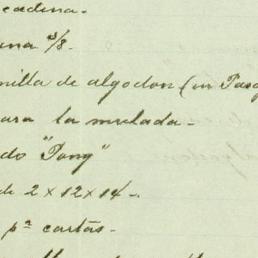 cadena.-
ana 3/8.-
nilla de algodon (un Pasq
ara la mulada.-
do "Pony"
de 2 x 12 x 14.-
pª cartas.-